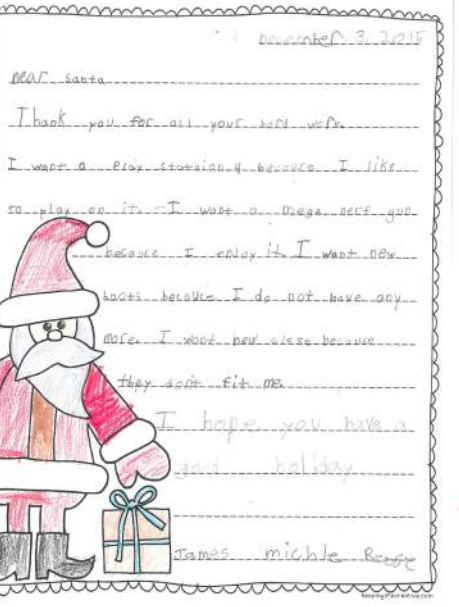 December 3, 2015
Dear Santa
Thank you for all your hard work.
I want a Play stataian 4 because I like
to play on it. I want a mega nerf gun
because I enjoy it. I want new
boots because I do not have any
more. I want new close because
they don't fit me.
I hope you have a
good holiday
James michle